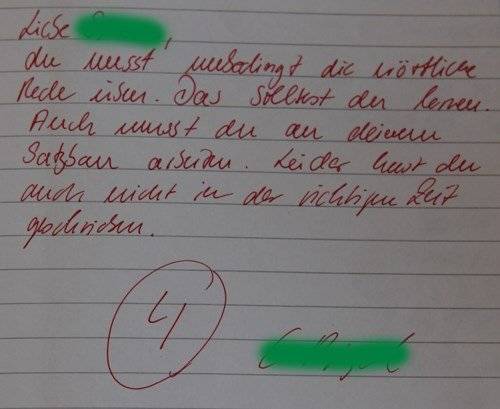 Liebe
du musst unbedingt die wörtliche
Rede üben. Das solltest du lernen.
Auch musst du an deinem
Satzbau arbeiten. Leider hast du
auch nicht in der richtigen Zeit
geschrieben.
4